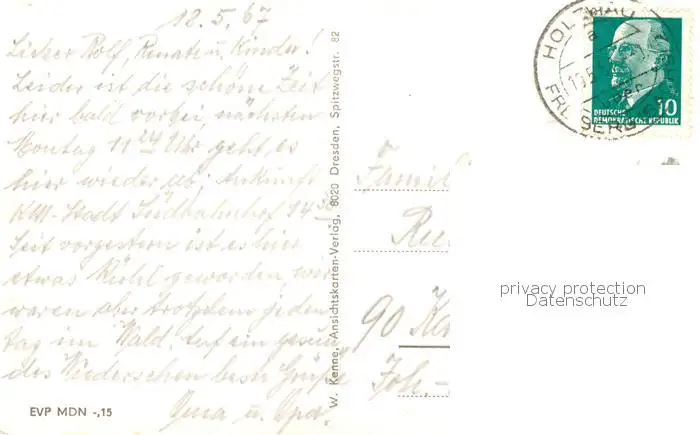 18.5.67
Lieber Rolf, Renate u. Kinder!
Leider ist die schöne Zeit
hier bald vorbei nächsten
Montag 11 24 Uhr geht es
hier wieder ab. Ankunft
KM-Stadt Südbahnhof 14 38
Seit vorgestern ist es hier
etwas kühl geworden, wir
waren aber trotzdem jeden
tag im Wald. Auf ein gesun
des Wiedersehen beste Grüße
Oma u. Opa.
EVP MDN -,15
W. Kenne, Ansichtskarten-Verlag, 8020 Dresden, Spitzwegstr. 82
HOLZHAU
a
FREIBERG
10
DEUTSCHE
DEMOKRATISCHE REPUBLIK
Famil
90
Joh.-
privacy protection
Datenschutz